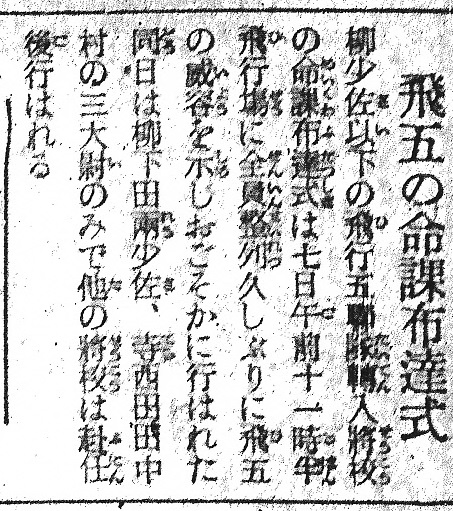 飛五の命課布達式
柳少佐以下の飛行五聯隊轉入將校
の命課布達式は七日午前十一時半
飛行場に全員整列久しぶりに飛五
の威容を示しおごそかに行はれた
同日は柳下田兩少佐、寺西田田中
村の三大尉のみで他の將校は赴任
後行はれる